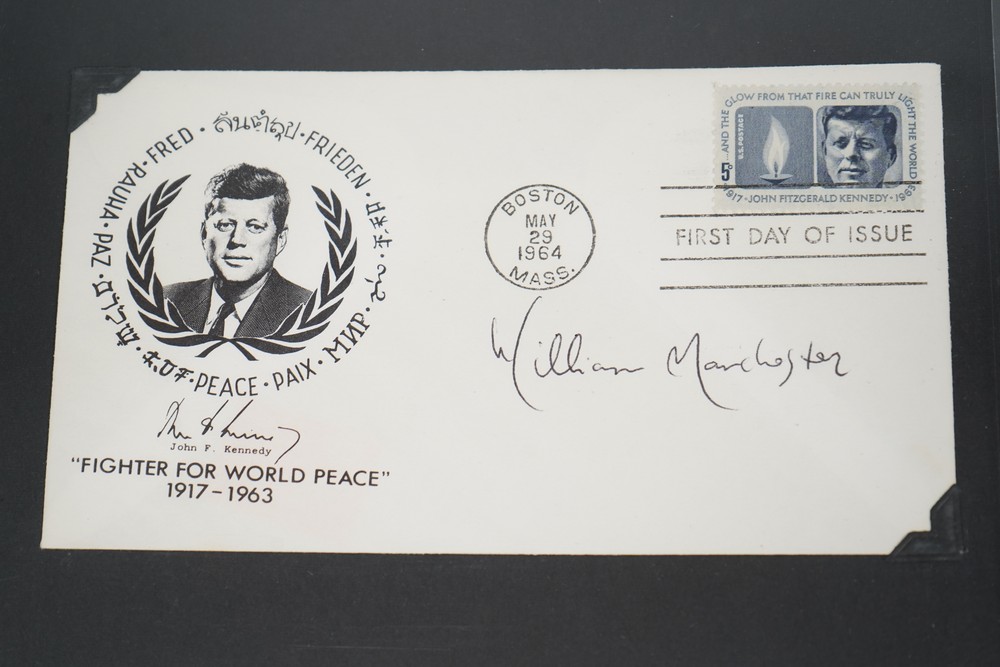 RAUHA · PAZ
FRED · สันติสุข · FRIEDEN
PEACE · PAIX · МИР
John F. Kennedy
"FIGHTER FOR WORLD PEACE"
1917 - 1963
BOSTON
MAY
29
1964
MASS.
...AND THE GLOW FROM THAT FIRE CAN TRULY LIGHT THE WORLD
U.S. POSTAGE
5¢
1917 · JOHN FITZGERALD KENNEDY · 1963
FIRST DAY OF ISSUE
William Manchester